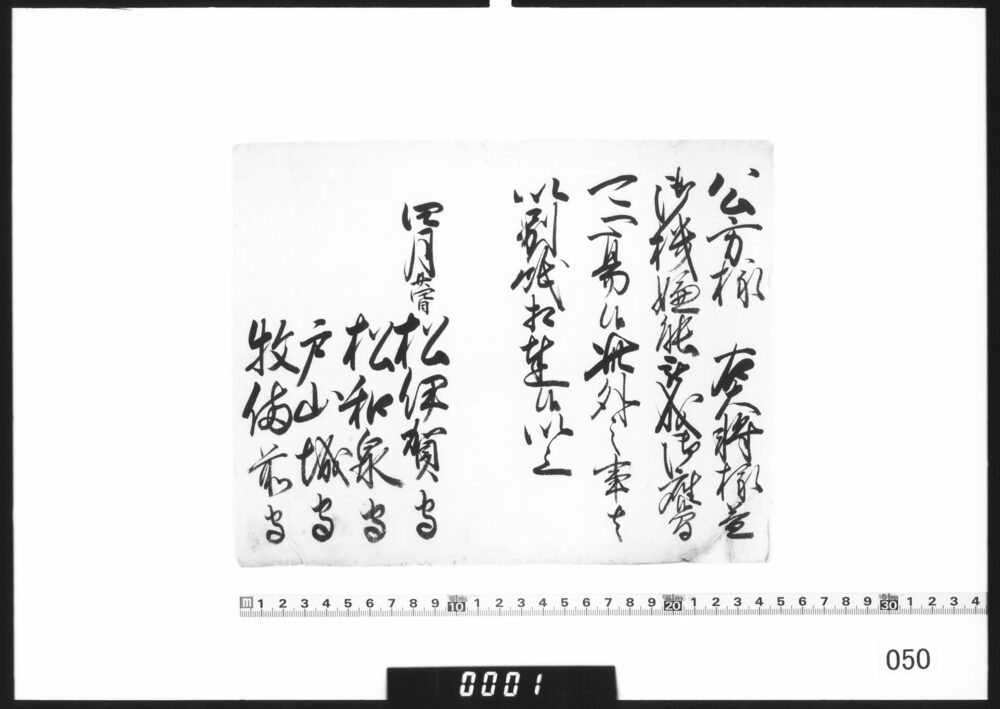 公方様 右大将様益
御機嫌能被成御座
可心易候此外之事者
以別紙相達候以上
四月
松伊賀守
松和泉守
戸山城守
牧備前守
1 2 3 4 5 6 7 8 9 10 1 2 3 4 5 6 7 8 9 20 1 2 3 4 5 6 7 8 9 30 1 2 3 4
050
0001